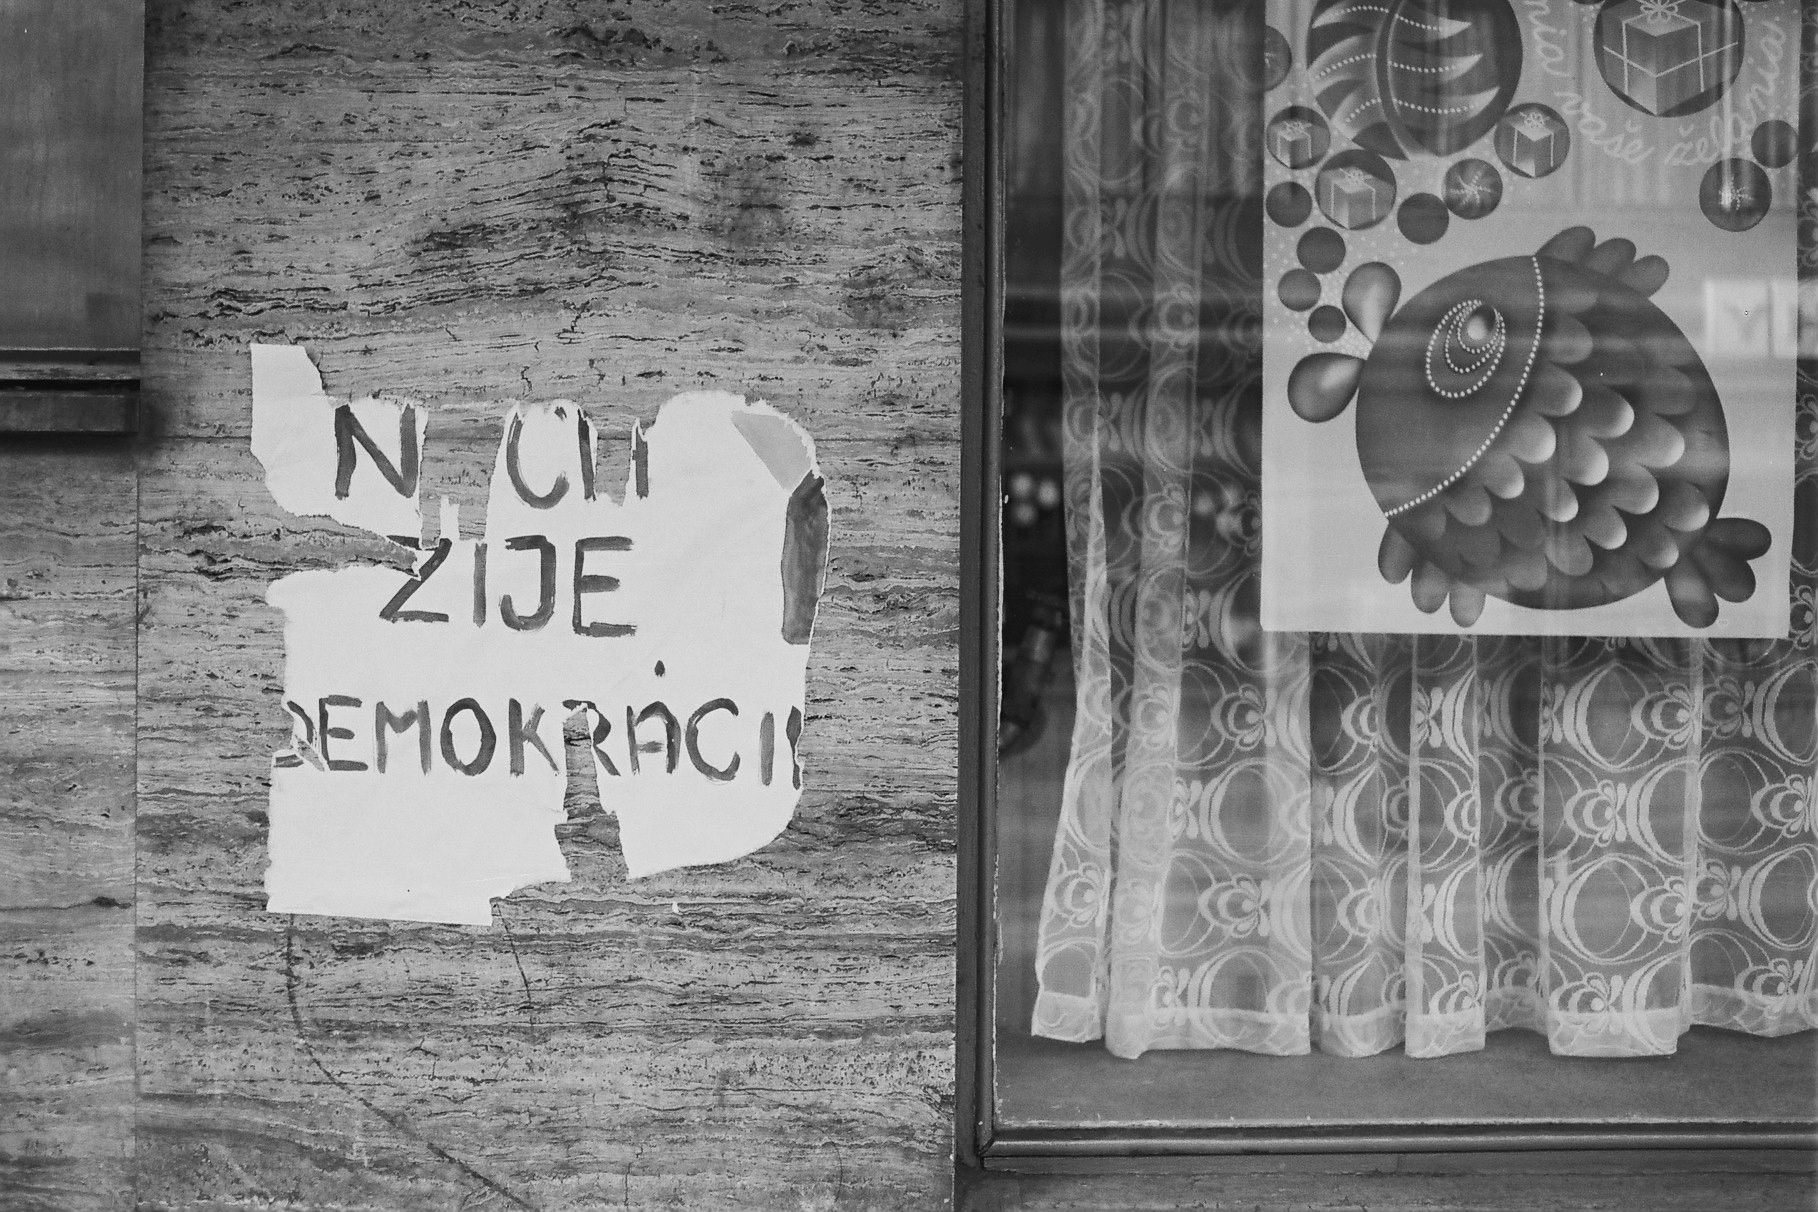 N CH
ZIJE
DEMOKRÁCI
nia vaše želania